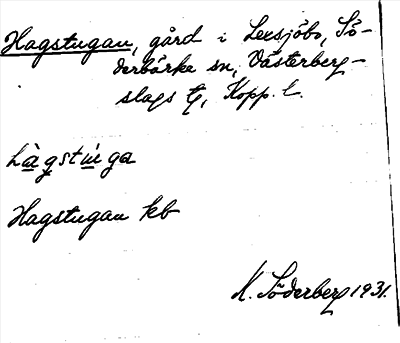 Hagstugan, gård i Leksjöbo, Sö-
derbärke sn, Västerberg-
slags tg, Kopp. l.
hàgstúga
Hagstugan kb
K. Söderberg 1931.